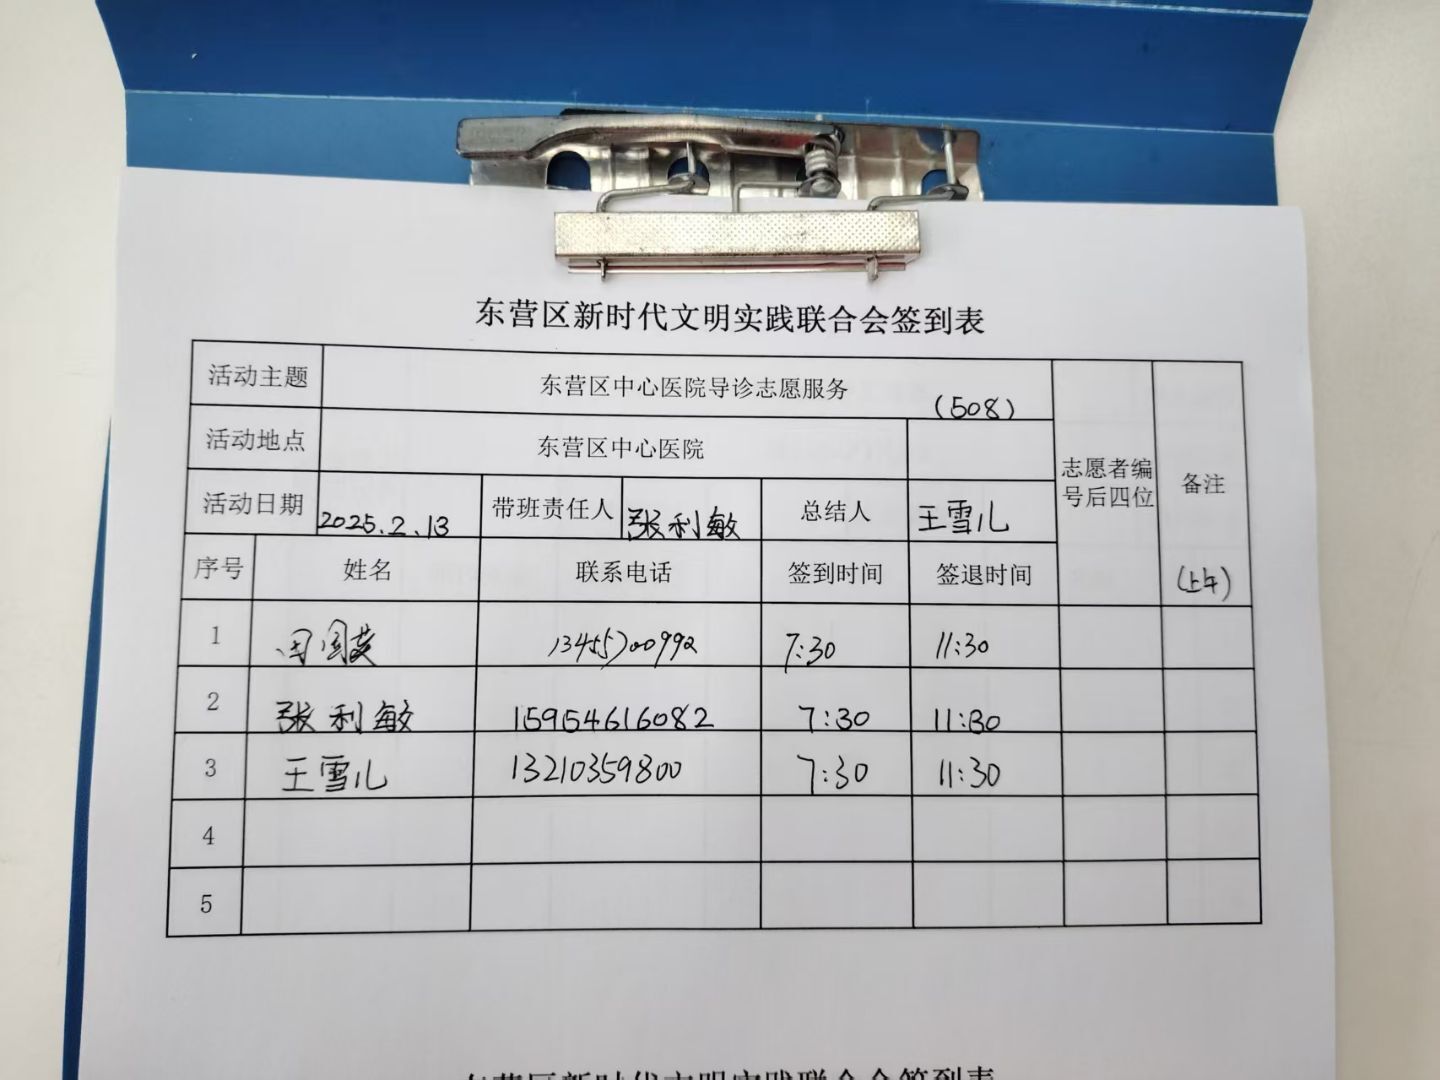 东营区新时代文明实践联合会签到表
活动主题 东营区中心医院导诊志愿服务 (508) 志愿者编号后四位 备注 (上午)
活动地点 东营区中心医院
活动日期 2025.2.13 带班责任人 张利敏 总结人 王雪儿
序号 姓名 联系电话 签到时间 签退时间
1 田国英 13455700992 7:30 11:30
2 张利敏 15954616082 7:30 11:30
3 王雪儿 13210359800 7:30 11:30
4
5
东营区新时代文明实践联合会签到表